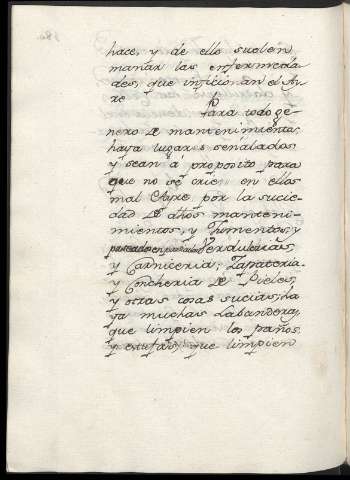 hace, y de ello suelen
manar las enfermeda
des, que inficionan el Ay
re
Para todo ge
nero de mantenimientos
haya lugares señalados
y sean a proposito para
que no se crien en ellos
mal Ayre por la sucie
dad de dhos manteni
mientos, y Jumentos, y
Verdulerias,
y Carniceria, Zapateria
y Concheria de Pieles,
y otras cosas sucias, ha
ya muchas Labanderas,
que limpien los paños,
y estufas, que limpien